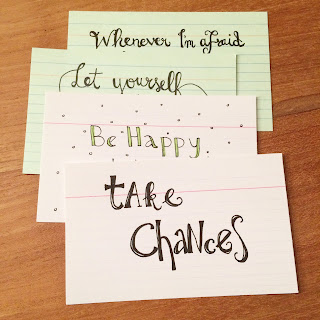 Whenever I'm afraid
Let yourself
Be Happy
tAke
ChanceS